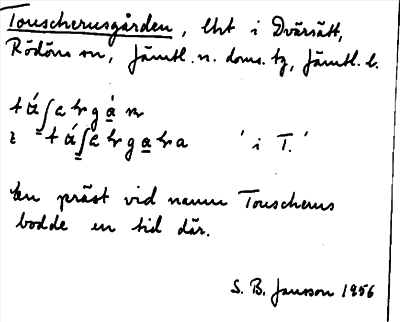 Touscherusgården, lht i Dvärsätt,
Rödöns sn, Jämtl. n. doms. tg, Jämtl. l.
'i T.'
En präst vid namn Touscherus
bodde en tid där.
S. B. Jansson 1956